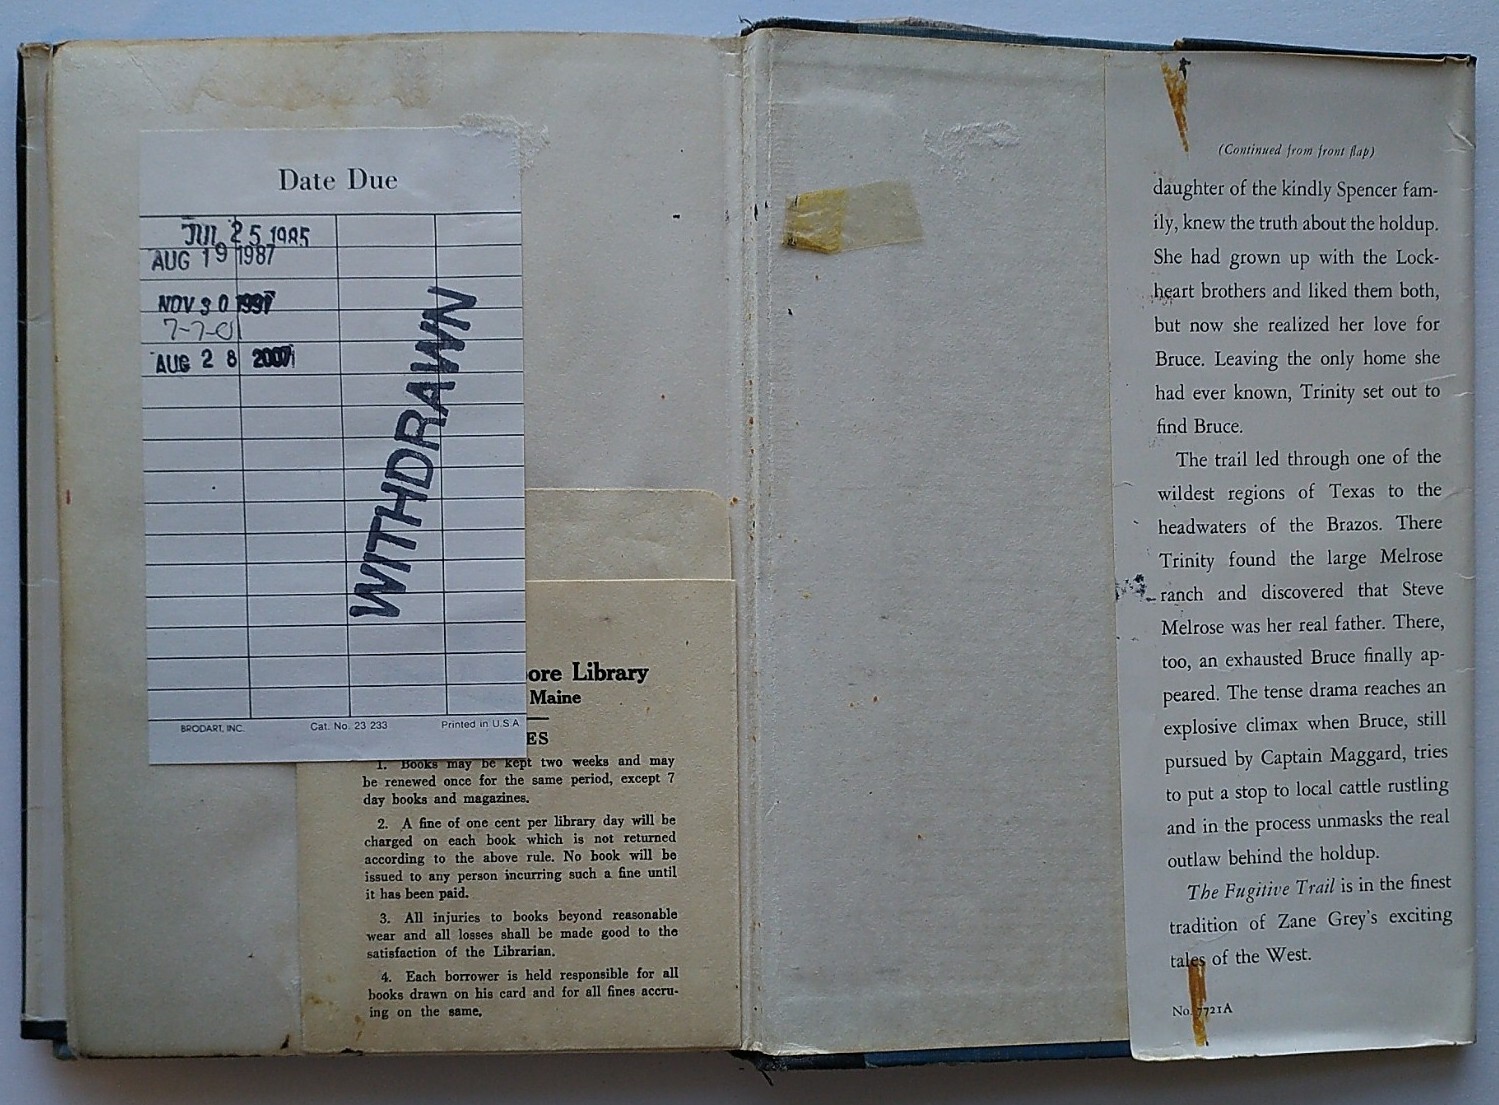 Date Due
JUL 25 1985
AUG 19 1987
NOV 30 1997
7-7-01
AUG 28 2007
WITHDRAWN
BRODART, INC.   Cat. No. 23 233   Printed in U.S.A.
ore Library
Maine
ES
1. Books may be kept two weeks and may
be renewed once for the same period, except 7
day books and magazines.
2. A fine of one cent per library day will be
charged on each book which is not returned
according to the above rule. No book will be
issued to any person incurring such a fine until
it has been paid.
3. All injuries to books beyond reasonable
wear and all losses shall be made good to the
satisfaction of the Librarian.
4. Each borrower is held responsible for all
books drawn on his card and for all fines accru-
ing on the same.
(Continued from front flap)
daughter of the kindly Spencer fam-
ily, knew the truth about the holdup.
She had grown up with the Lock-
heart brothers and liked them both,
but now she realized her love for
Bruce. Leaving the only home she
had ever known, Trinity set out to
find Bruce.
The trail led through one of the
wildest regions of Texas to the
headwaters of the Brazos. There
Trinity found the large Melrose
ranch and discovered that Steve
Melrose was her real father. There,
too, an exhausted Bruce finally ap-
peared. The tense drama reaches an
explosive climax when Bruce, still
pursued by Captain Maggard, tries
to put a stop to local cattle rustling
and in the process unmasks the real
outlaw behind the holdup.
The Fugitive Trail is in the finest
tradition of Zane Grey's exciting
tales of the West.
No. 7721A